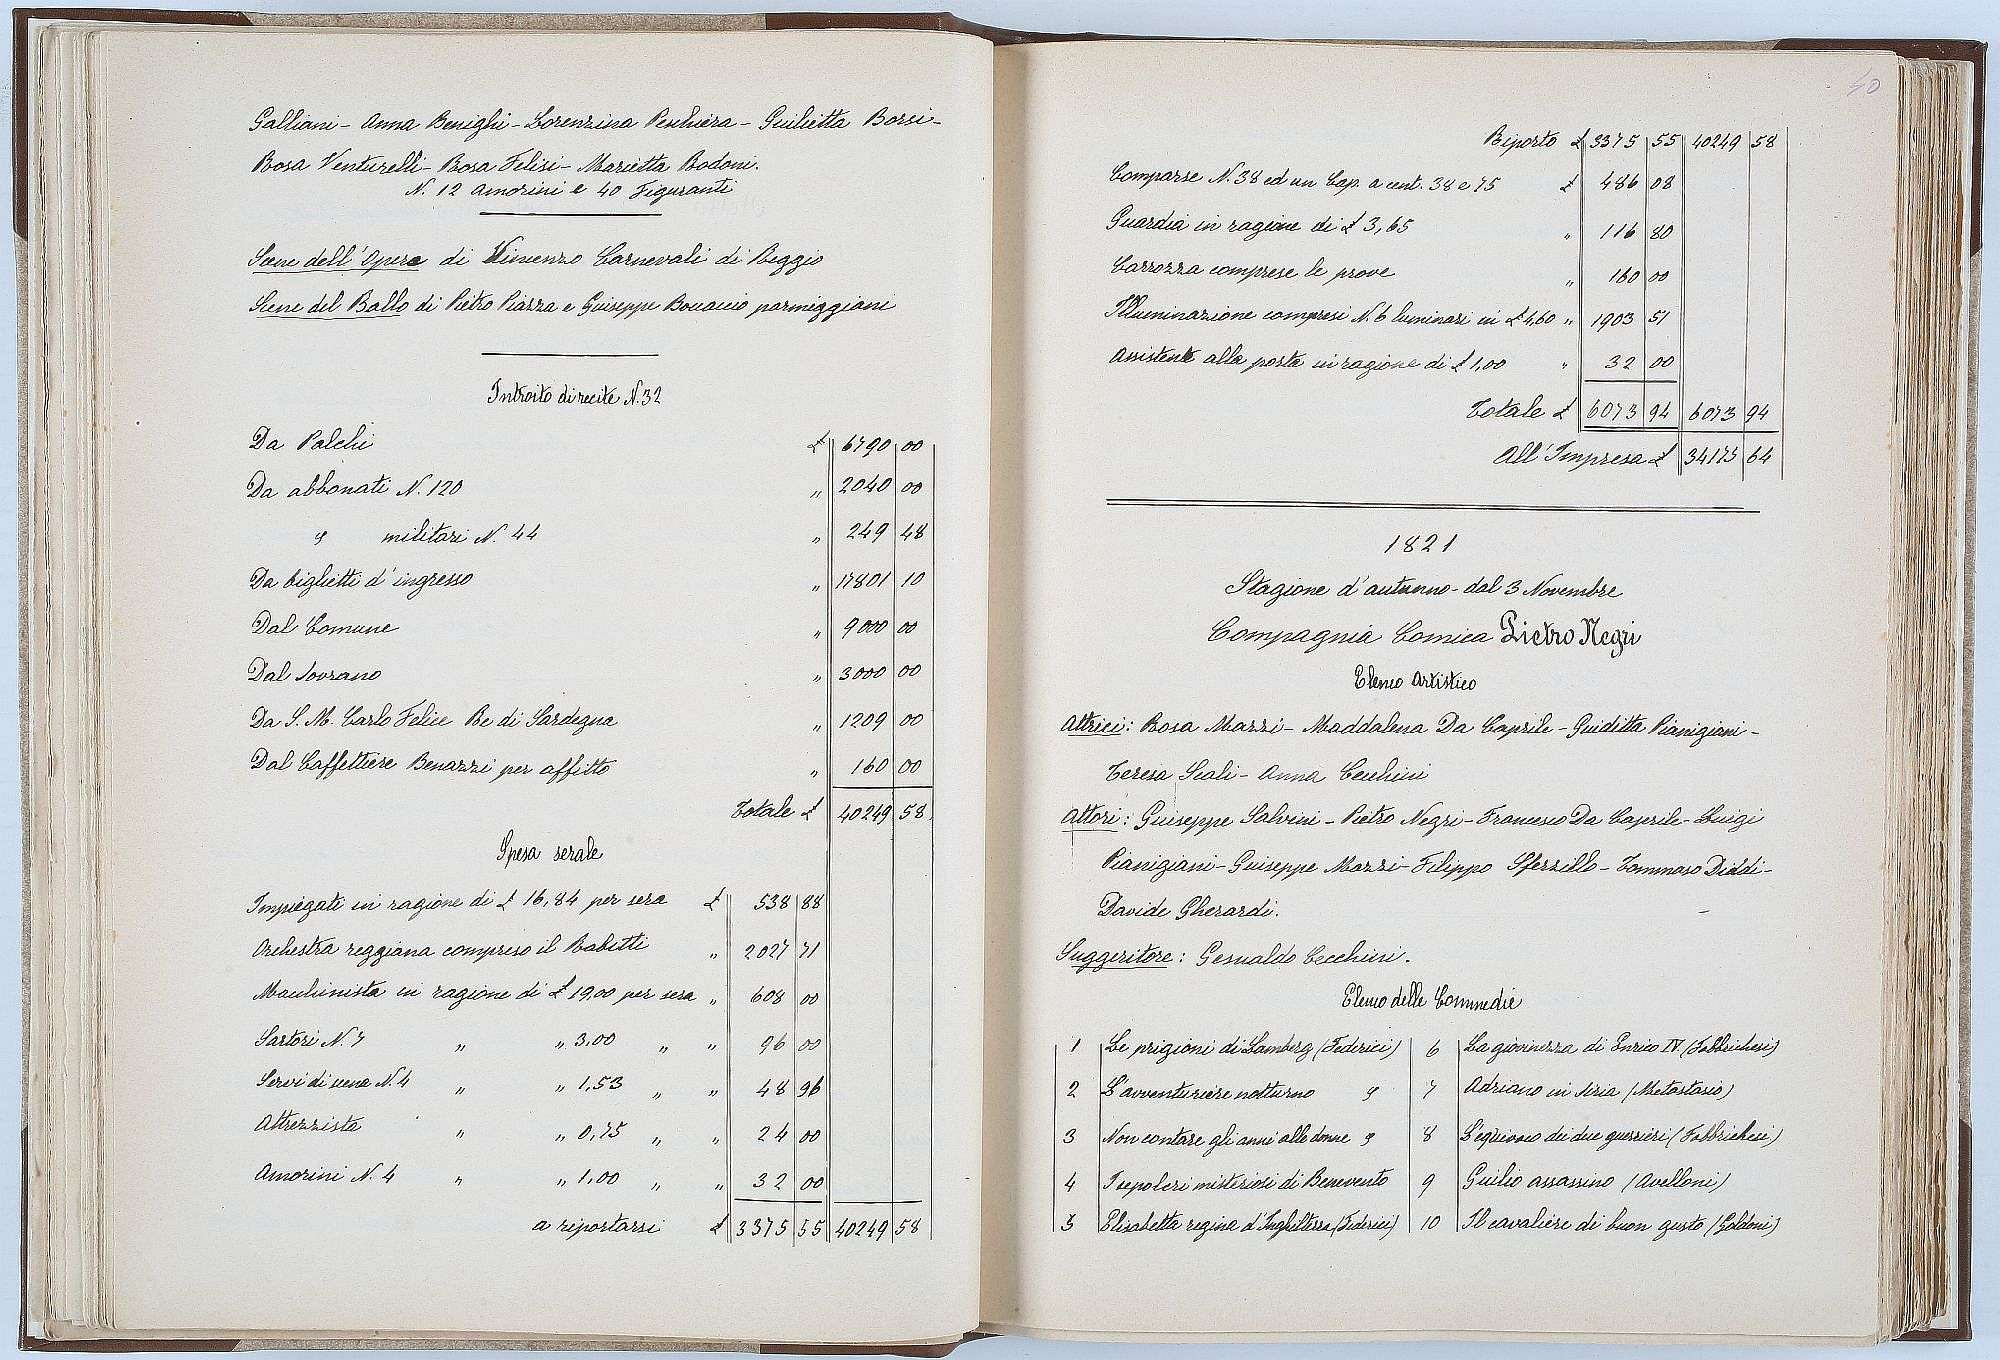 Galliani - Anna Benighi - Lorenzina Peschiera - Giulietta Borsi -
Rosa Venturelli - Rosa Felisi - Marietta Bodoni.
N. 12 Amorini e 40 Figuranti
Scene dell'Opera di Vincenzo Carnevali di Reggio
Scene del Ballo di Pietro Piazza e Giuseppe Boccaccio parmeggiani
Introito di recite N. 32
Da Palchi £ 6790 00
Da abbonati N. 120 " 2040 00
" militari N. 44 " 249 48
Da biglietti d'ingresso " 17801 10
Dal Comune " 9000 00
Dal Sovrano " 3000 00
Da S. M. Carlo Felice Re di Sardegna " 1209 00
Dal Caffettiere Benazzi per affitto " 160 00
Totale £ 40249 58
Spesa serale
Impiegati in ragione di £ 16,84 per sera £ 538 88
Orchestra reggiana compreso il Rabitti " 2027 71
Macchinista in ragione di £ 19,00 per sera " 608 00
Sartori N. 7 " " 3,00 " " 96 00
Servi di scena N. 4 " " 1,53 " " 48 96
Attrezzista " " 0,75 " " 24 00
Amorini N. 4 " " 1,00 " " 32 00
a riportarsi £ 3375 55 40249 58
40
Riporto £ 3375 55 40249 58
Comparse N. 38 ed un Cap. a cent. 38 e 75 £ 486 08
Guardia in ragione di £ 3,65 " 116 80
Carrozza comprese le prove " 160 00
Illuminazione compresi N. 6 luminari in £ 4,60 " 1903 51
Assistente alla porta in ragione di £ 1,00 " 32 00
Totale £ 6073 94 6073 94
All'Impresa £ 34175 64
1821
Stagione d'autunno - dal 3 Novembre
Compagnia Comica Pietro Negri
Elenco Artistico
Attrici: Rosa Mazzi - Maddalena Da Caprile - Giuditta Pianigiani -
Teresa Scali - Anna Cecchini
Attori: Giuseppe Salvini - Pietro Negri - Francesco Da Caprile - Luigi
Pianigiani - Giuseppe Mazzi - Filippo Sferzillo - Tommaso Diddi -
Davide Gherardi.
Suggeritore: Gesualdo Cecchini.
Elenco delle Commedie
1 Le prigioni di Lamberg (Federici) 6 La giovinezza di Enrico IV (Fabbrichesi)
2 L'avventuriere notturno " 7 Adriano in Siria (Metastasio)
3 Non contare gli anni alle donne " 8 L'equivoco dei due guerrieri (Fabbrichesi)
4 I sepolcri misteriosi di Benevento 9 Giulio assassino (Avelloni)
5 Elisabetta regina d'Inghilterra (Federici) 10 Il cavaliere di buon gusto (Goldoni)